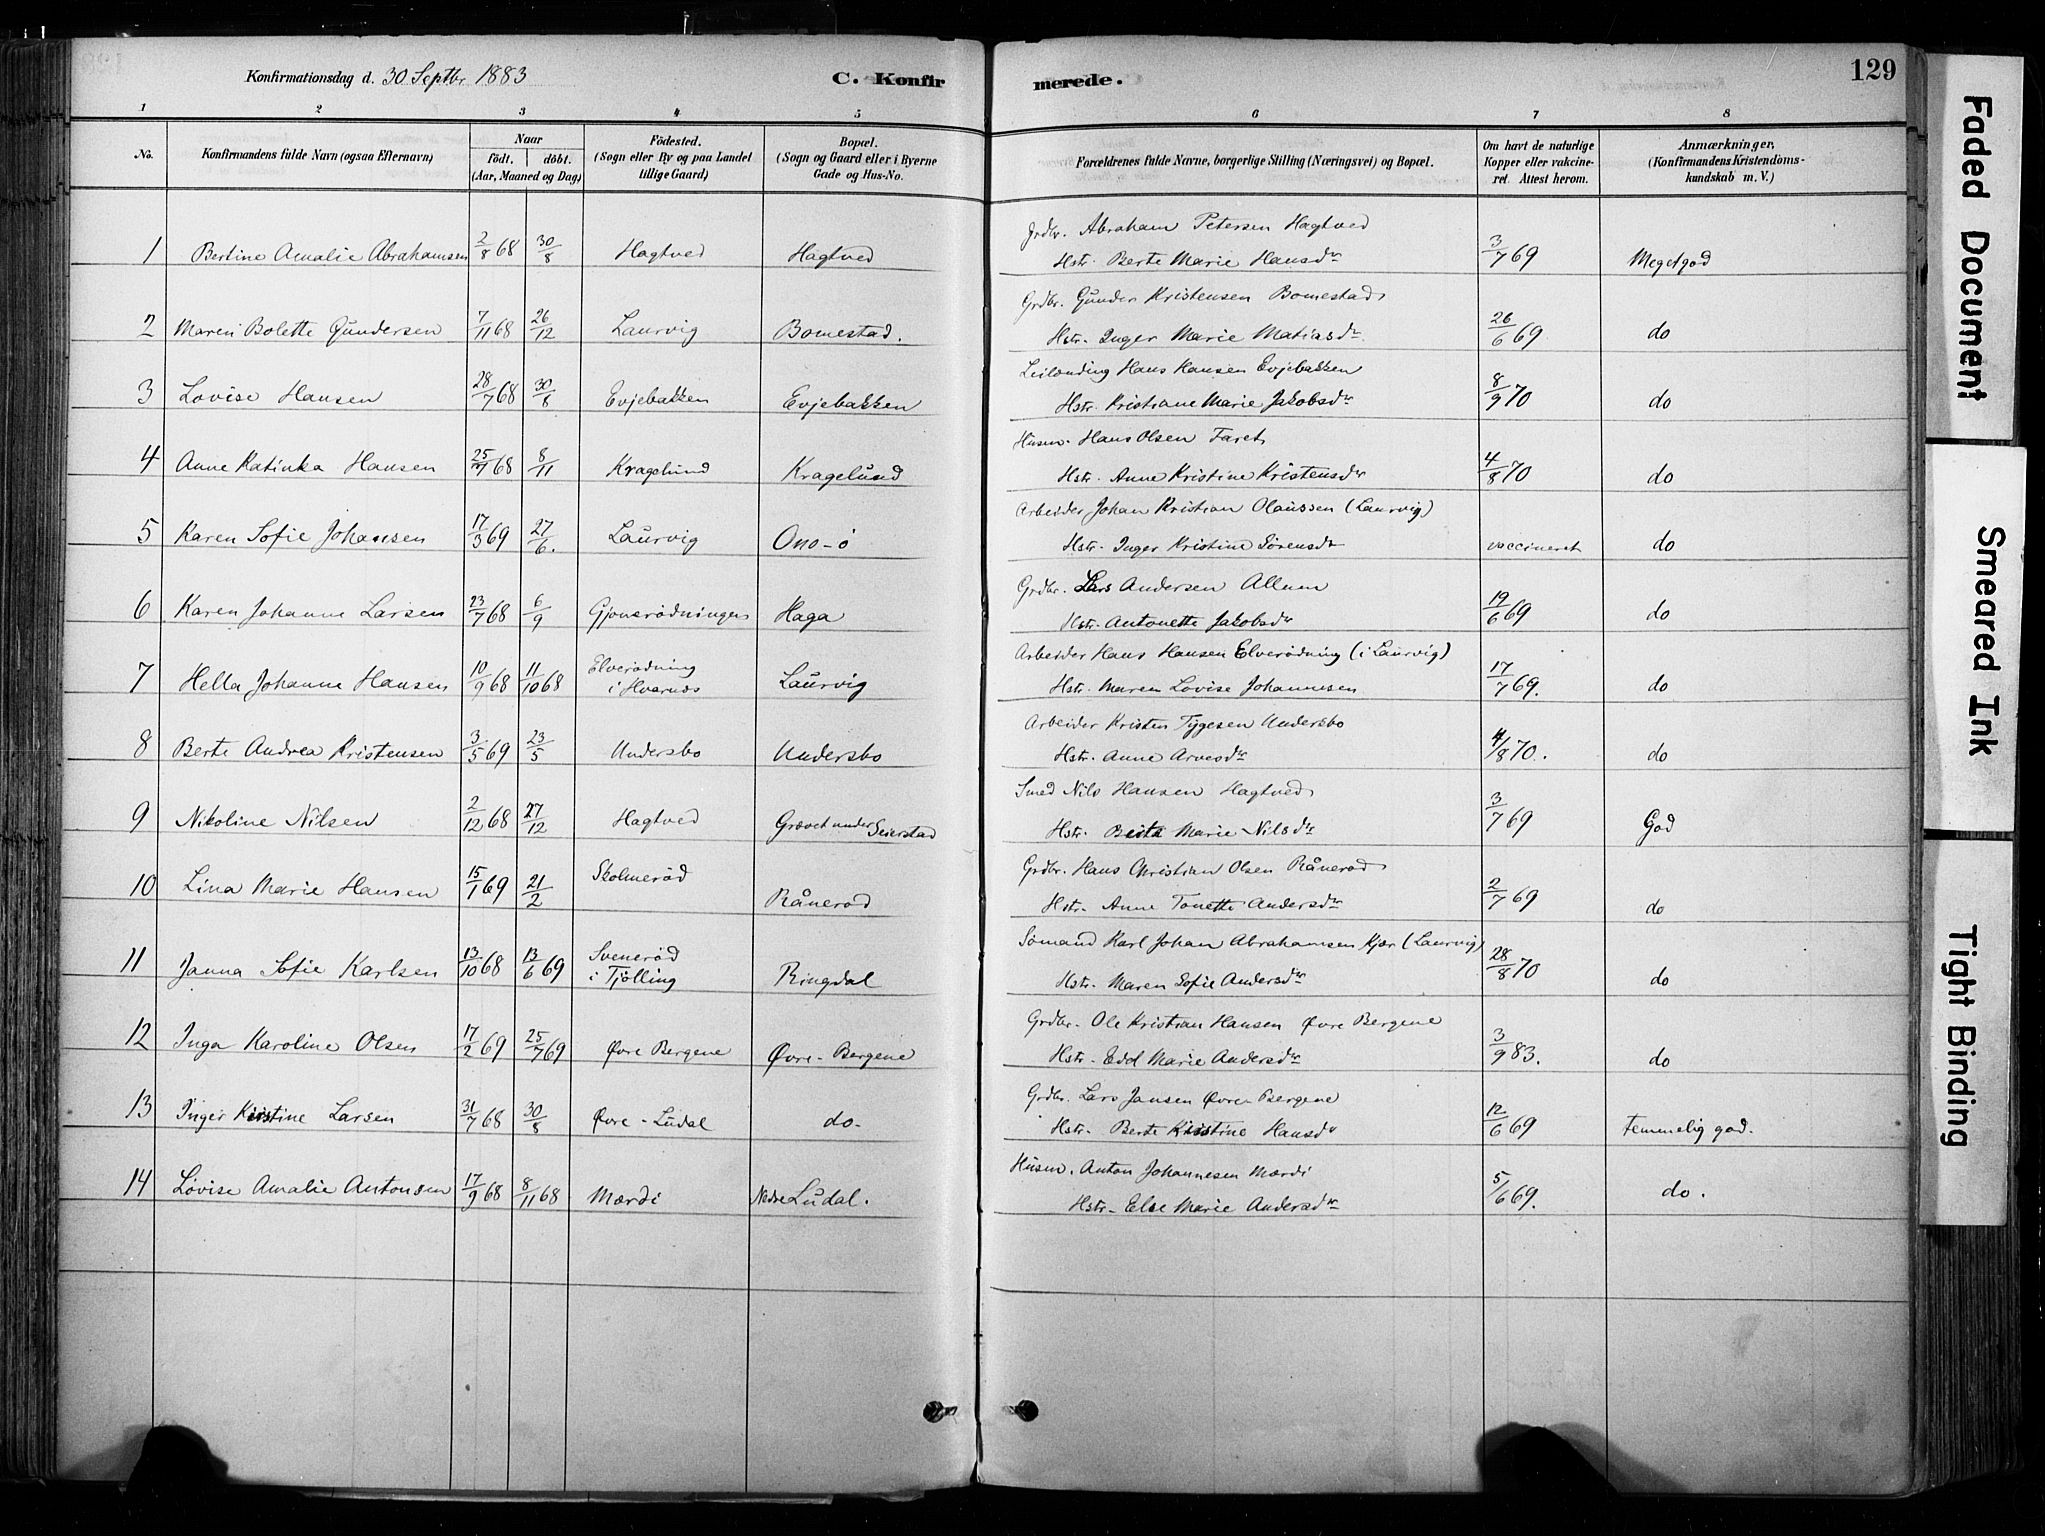 Konfirmationsdag d. 30 Septbr 1883
C. Konfir merede.
129
1 2 3 4 5 6 7 8
No.
Konfirmandens fulde Navn (ogsaa Efternavn)
Naar
födt. döbt.
(Aar, Maaned og Dag)
Födested.
(Sogn eller By og paa Landet
tillige Gaard)
Bopæl.
(Sogn og Gaard eller i Byerne
Gade og Hus-No.
Forældrenes fulde Navne, borgerlige Stilling (Næringsvei) og Bopæl.
Om havt de naturlige
Kopper eller vakcine-
ret. Attest herom.
Anmærkninger,
(Konfirmandens Kristendoms-
kundskab m. V.)
Grdbr. Abraham Petersen Hagtved
1 Bertine Amalie Abrahamsen 2/8 68 30/8 Hagtved Hagtved Hstr. Berte Marie Hansdr 3/7 69 Meget god
Grdbr. Gunder Kristensen Bomestad
2 Maren Bolette Gundersen 7/11 68 26/12 Laurvig Bomestad. Hstr. Inger Marie Matiasdr 26/6 69 do
Leilænding Hans Hansen Evjebakken
3 Lovise Hansen 28/7 68 30/8 Evjebakken Evjebakken Hstr. Kristiane Marie Jakobsdr 8/9 70 do
Husm. Hans Olsen Faret
4 Anne Katinka Hansen 25/7 68 8/11 Kragelund Kragelund Hstr. Anne Kristine Kristensdr 4/8 70 do
Arbeider Johan Kristian Olaussen (Laurvig)
5 Karen Sofie Johansen 17/3 69 27/6. Laurvig Ono-ö Hstr. Inger Kristine Sörensdr vaccineret do
Grdbr. Lars Andersen Allum
6 Karen Johanne Larsen 23/7 68 6/9 Gjonsrödningen Haga Hstr. Antonette Jakobsdr 19/6 69 do
Arbeider Hans Hansen Elverödning (i Laurvig)
7 Hella Johanne Hansen 10/9 68 11/10 68 Elverödning i Hvarnes Laurvig Hstr. Maren Lovise Johannesen 17/7 69. do
Arbeider Kristen Tygesen Undersbo
8 Berte Andrea Kristensen 3/5 69 23/5 Undersbo Undersbo Hstr. Anne Arvesdr 4/8 70. do
Smed Nils Hansen Hagtved
9 Nikoline Nilsen 2/12 68 27/12 Hagtved Grøvet under Seierstad Hstr. Berte Marie Nilsdr 3/7 69 God
Grdbr. Hans Christian Olsen Rånerød
10 Lina Marie Hansen 15/1 69 21/2 Skolmeröd Rånerød Hstr. Anne Tonette Andersdr 2/7 69 do
Sömand Karl Johan Abrahamsen Kjær (Laurvig)
11 Janna Sofie Karlsen 13/10 68 13/6 69 Sveneröd i Tjölling Ringdal Hstr. Maren Sofie Andersdr 28/8 70 do
Grdbr. Ole Kristian Hansen Øvre Bergene
12 Inga Karoline Olsen 17/2 69 25/7 69 Øvre Bergene Øvre-Bergene Hstr. Edel Marie Andersdr 3/9 83. do
Grdbr. Lars Jansen Øvre Bergene
13 Inger Kirstine Larsen 31/7 68 30/8 Øvre-Ludal do. Hstr. Berte Kristine Hansdr 12/6 69 temmelig god.
Husm. Anton Johannesen Mærdi
14 Lovise Amalie Antonsen 17/9 68 8/11 68 Mærdi Nedre Ludal. Hstr. Else Marie Andersdr 5/6 69. do.
Faded Document
Smeared Ink
Tight Binding